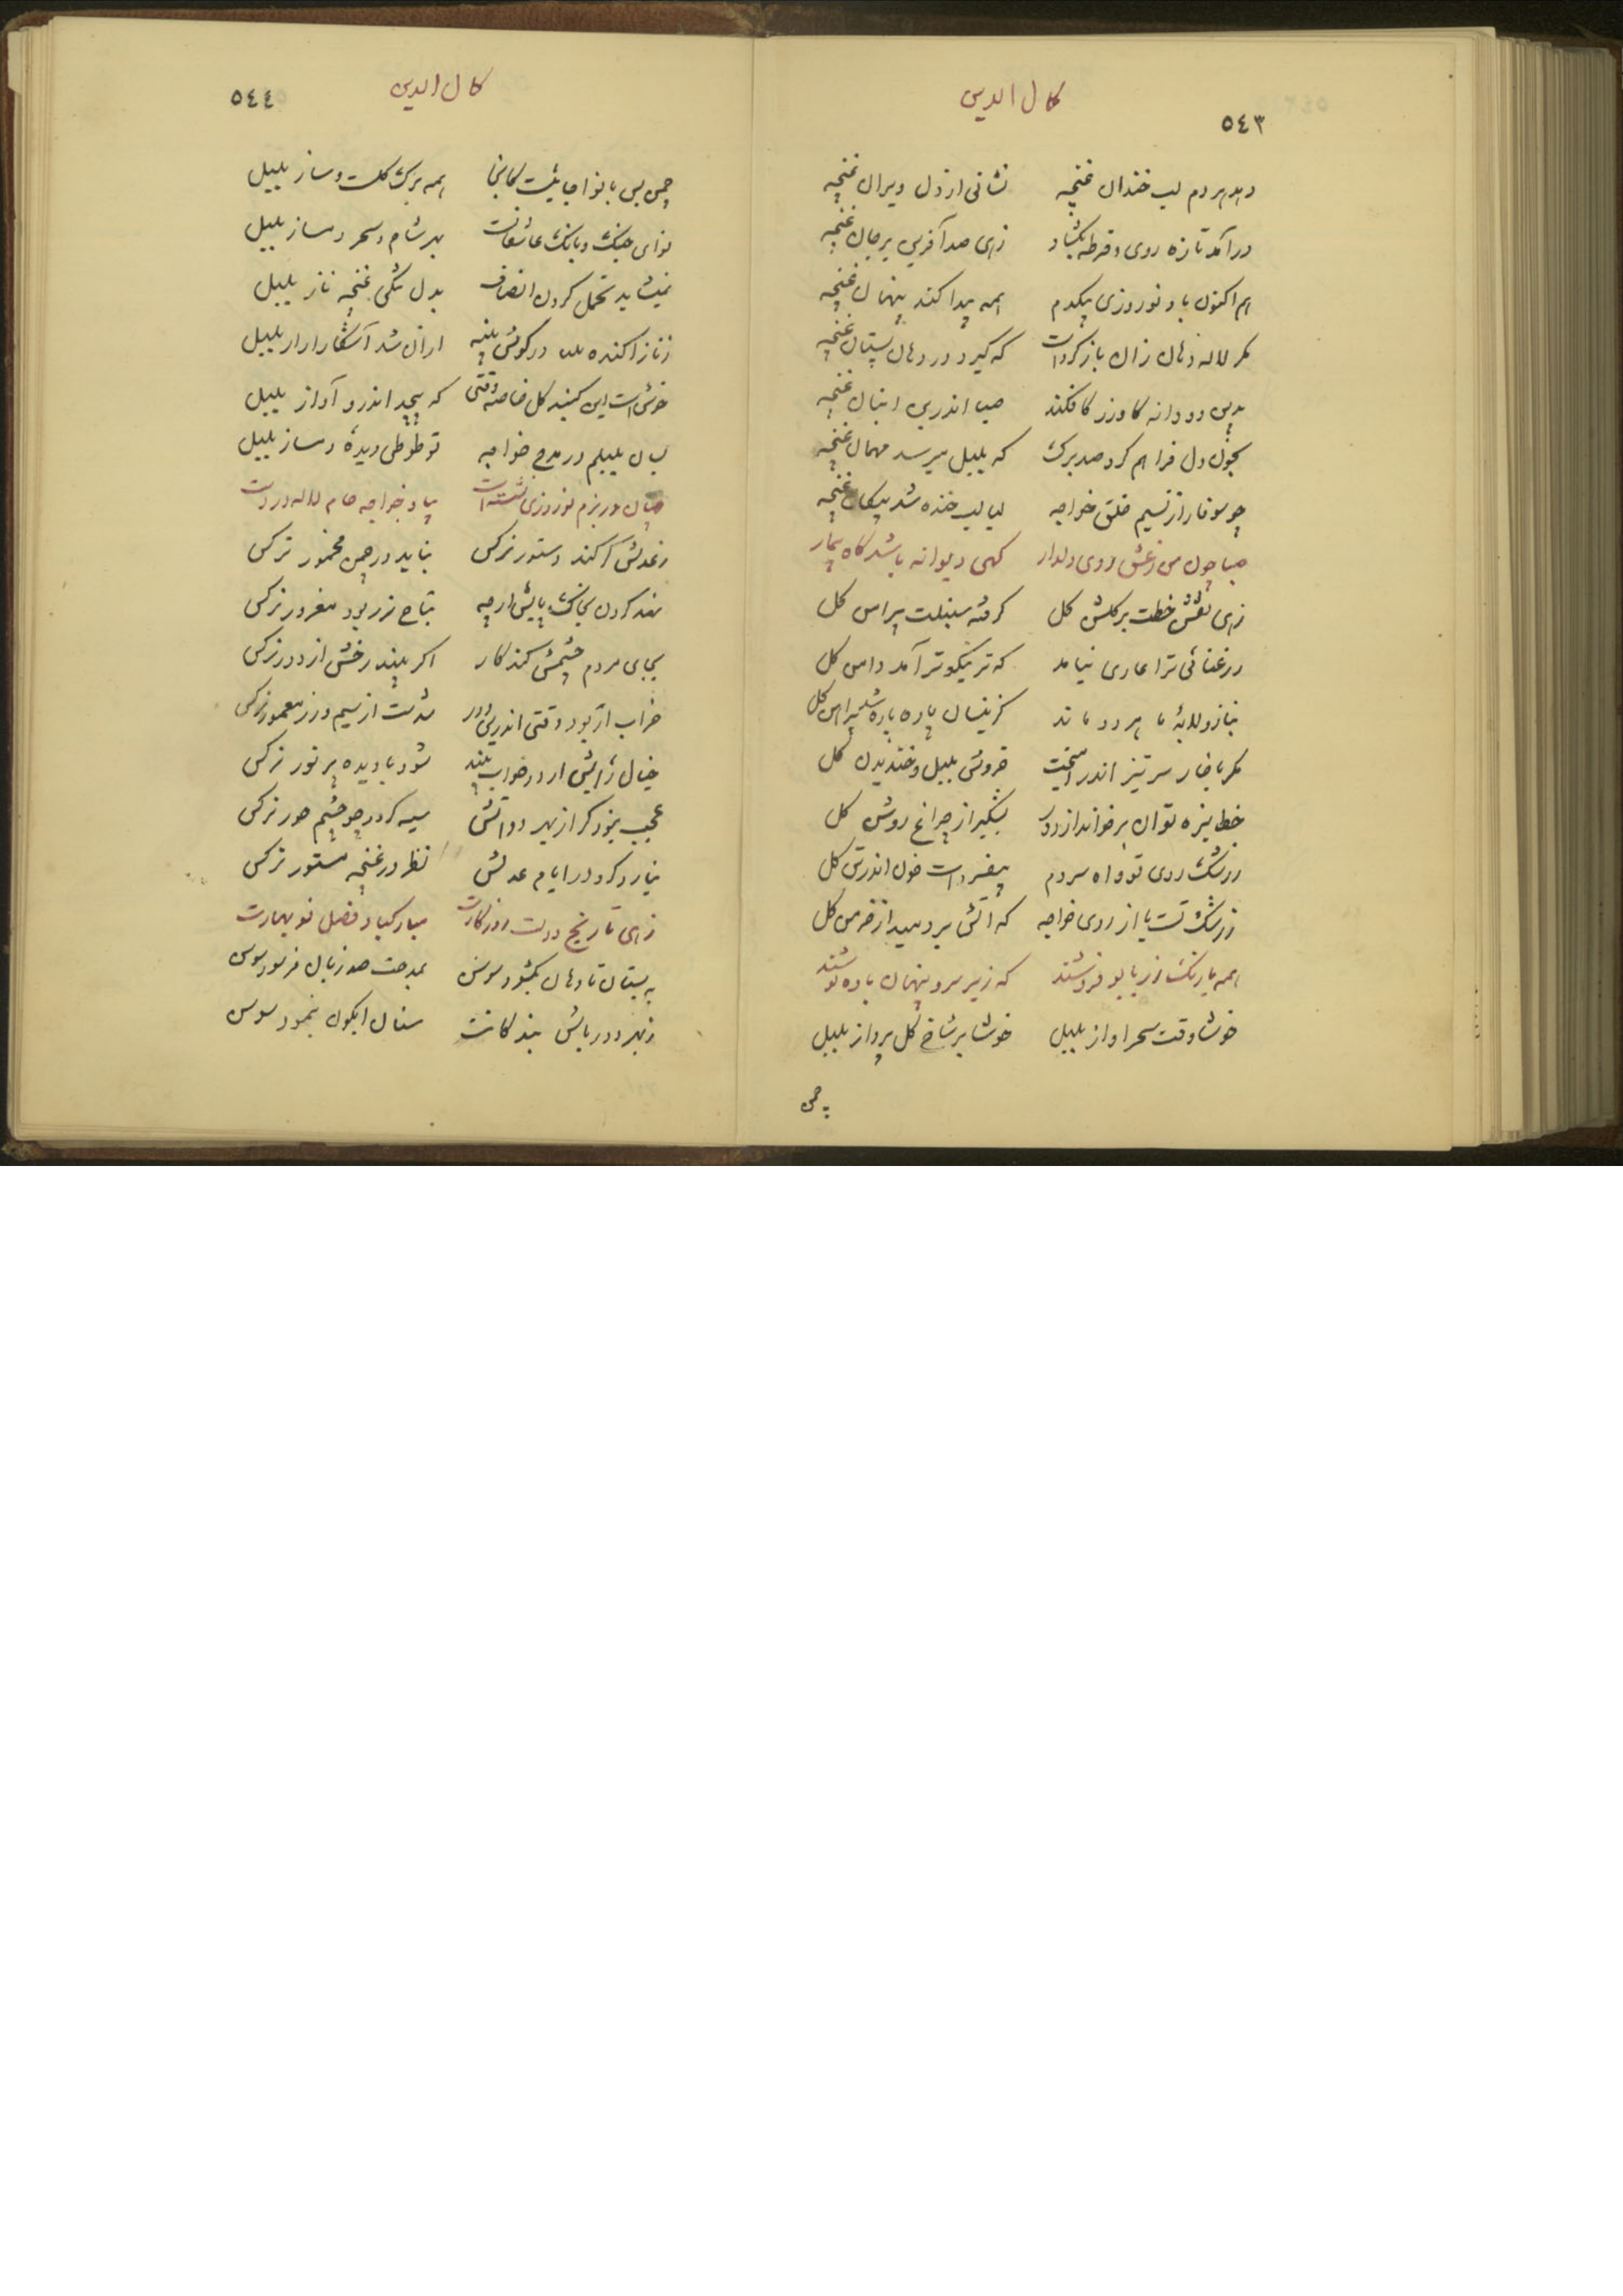 کمال الدین
٥٤٣
دهد هر دم لب خندان غنچه نشانی از دل ویران غنچه
درآمد تازه روی و قرطه بگشاد زهی صد آفرین بر جان غنچه
هم اکنون باد نوروزی بیکدم همه پیدا کند پنهان غنچه
مگر لاله دهان زان باز کردست که گیرد در دهان پستان غنچه
بدین دو دانه کاورز کافکند صبا اندرین انبان غنچه
بخون دل فراهم کرد صد برگ که بلبل میرسد مهمان غنچه
چو سوفار از نسیم خلق خواجه لبالب خنده شد پیکان غنچه
صبا چون من ز عشق روی دلدار گهی دیوانه باشد گاه بیمار
زهی نقش خطت بر گلشن گل گرفته سنبلت پیرامن گل
ز رعنائی ترا عاری نیامد که تر نیکوتر آمد دامن گل
بناز و لابهٔ ما هر دو ماند کزینسان پاره پاره شد پیراهن گل
مگر با خار سر تیز اندر آمیخت خروش بلبل و خندیدن گل
خط سبزه توان برخواند از دور بشبگیر از چراغ روشن گل
ز رشک روی تو و آه سردم بیفسردست خون اندر تن گل
ز رشک تست یا از روی خواجه که آتش بردمید از خرمن گل
همه با رنگ زر با بو فروشند که زیر سرو پنهان باده نوشند
خوشا وقت سحر آواز بلبل خوشا بر شاخ گل پرواز بلبل
چمن
کمال الدین
٥٤٤
چمن بس با نوا جائیست کانجا همه برگ گلست و ساز بلبل
نوای چنگ و بانگ عاشقانست بهر شام و سحر دمساز بلبل
نمیشاید تحمل کردن انصاف بدل تنگی غنچه ناز بلبل
زناز آکنده در گوش پنبه ازان شد آشکارا راز بلبل
خوش است این گنبد گل خاصه وقتی که پیچد اندرو آواز بلبل
بسان بلبلم در مدح خواجه تو طوطی دیدهٔ دمساز بلبل
چمان در بزم نوروزی نشستست بیاد خواجه جام لاله در دست
ز عدلش گر کند دستور نرگس نیاید در چمن مخمور نرگس
نهد گردن بخاک پایش ارچه بتاج زر بود مغرور نرگس
بجای مردم چشمش کند کار اگر بیند رخش از دور نرگس
خراب ار بود وقتی اندرین دور شدست از سیم و زر معمور نرگس
خیال رایش ار در خواب بیند شود با دیده پر نور نرگس
عجب نبود گر از بهر دواتش سیه گردد چو چشم حور نرگس
نیارد کرد در ایام عدلش نظر در غنچه مستور نرگس
زهی تاریخ دولت روزگارت مبارکباد فصل نوبهارت
به بستان تا دهان بگشود سوسن بمدحت صد زبان فرسود سوسن
ز بهر دورباش بندگانت سنان آبگون بنمود سوسن